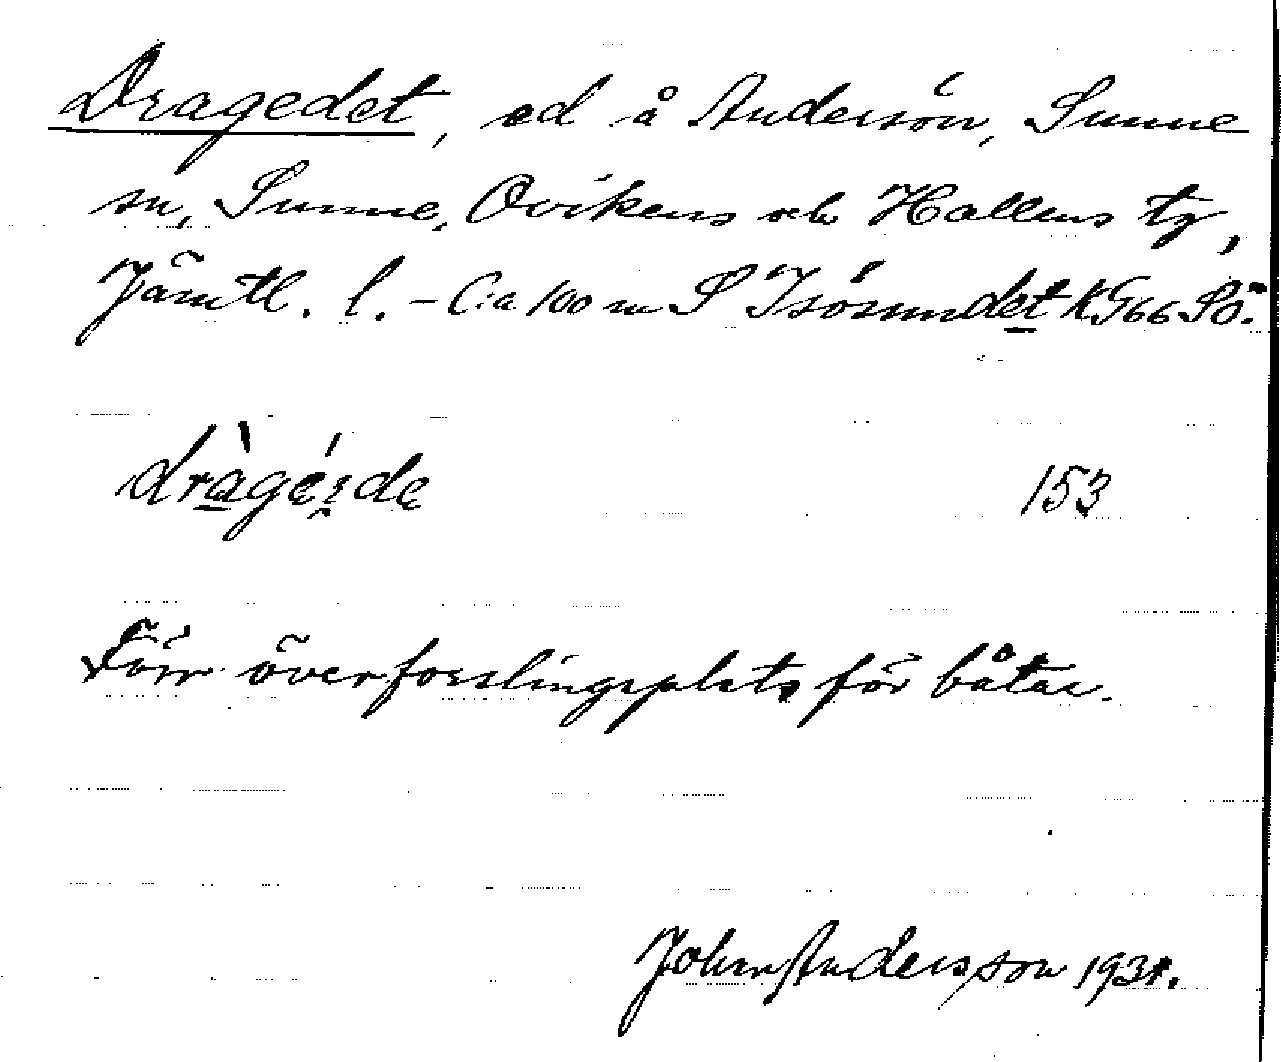 Dragedet, ed å Andersön, Sunne
sn, Sunne, Ovikens och Hallens tg,
Jämtl. l. – C:a 100 m S Isösundet KG66 SÖ.
dràgé:de 153
Förr överforslingsplats för båtar.
John Andersson 1931.